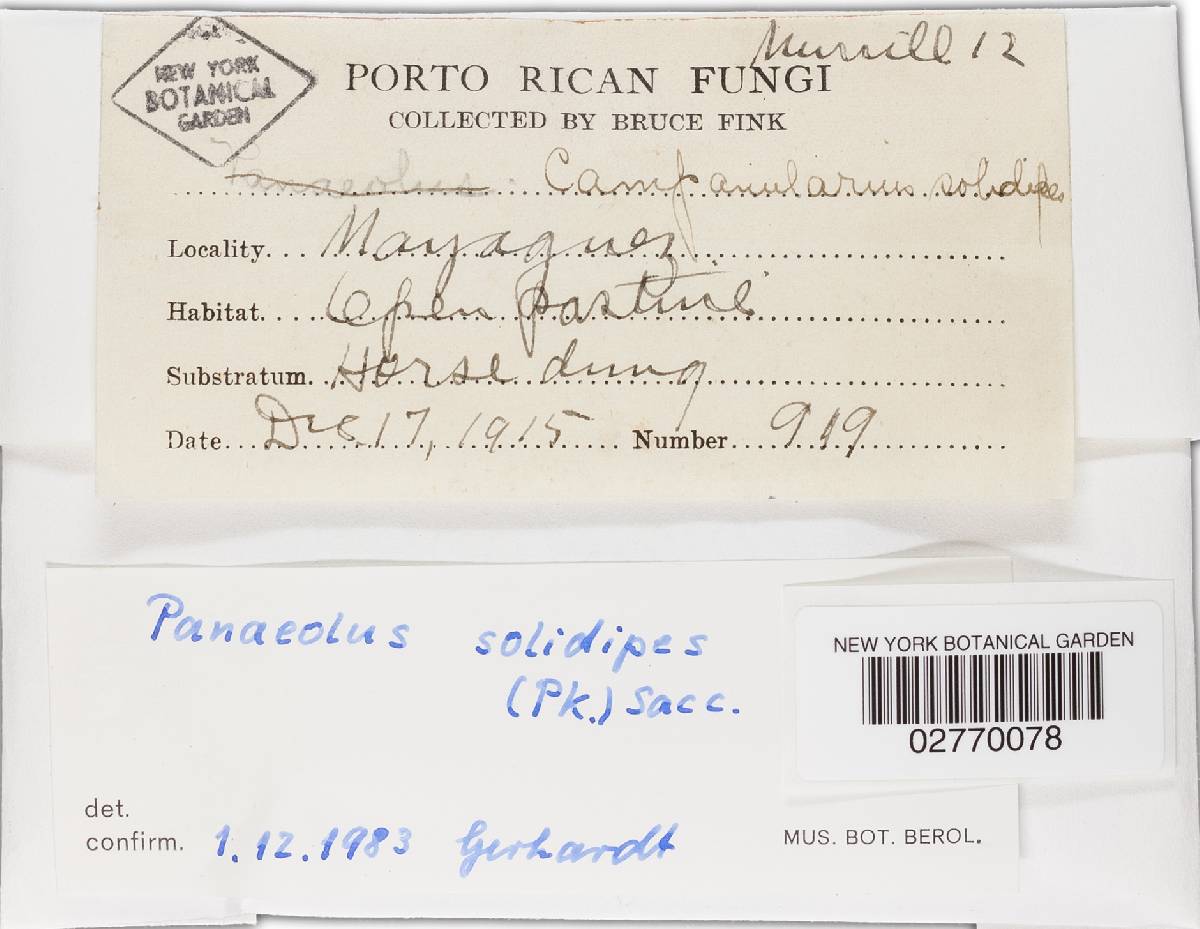 Murrill 12
NEW YORK
BOTANICAL
GARDEN
PORTO RICAN FUNGI
COLLECTED BY BRUCE FINK
Panaeolus: Campanularius solidipes
Locality... Mayaguez
Habitat.... Open pasture
Substratum.. Horse dung
Date... Dec 17, 1915 Number... 919
Panaeolus solidipes
(Pk.) Sacc.
NEW YORK BOTANICAL GARDEN
02770078
det.
confirm. 1.12.1983 Gerhardt
MUS. BOT. BEROL.